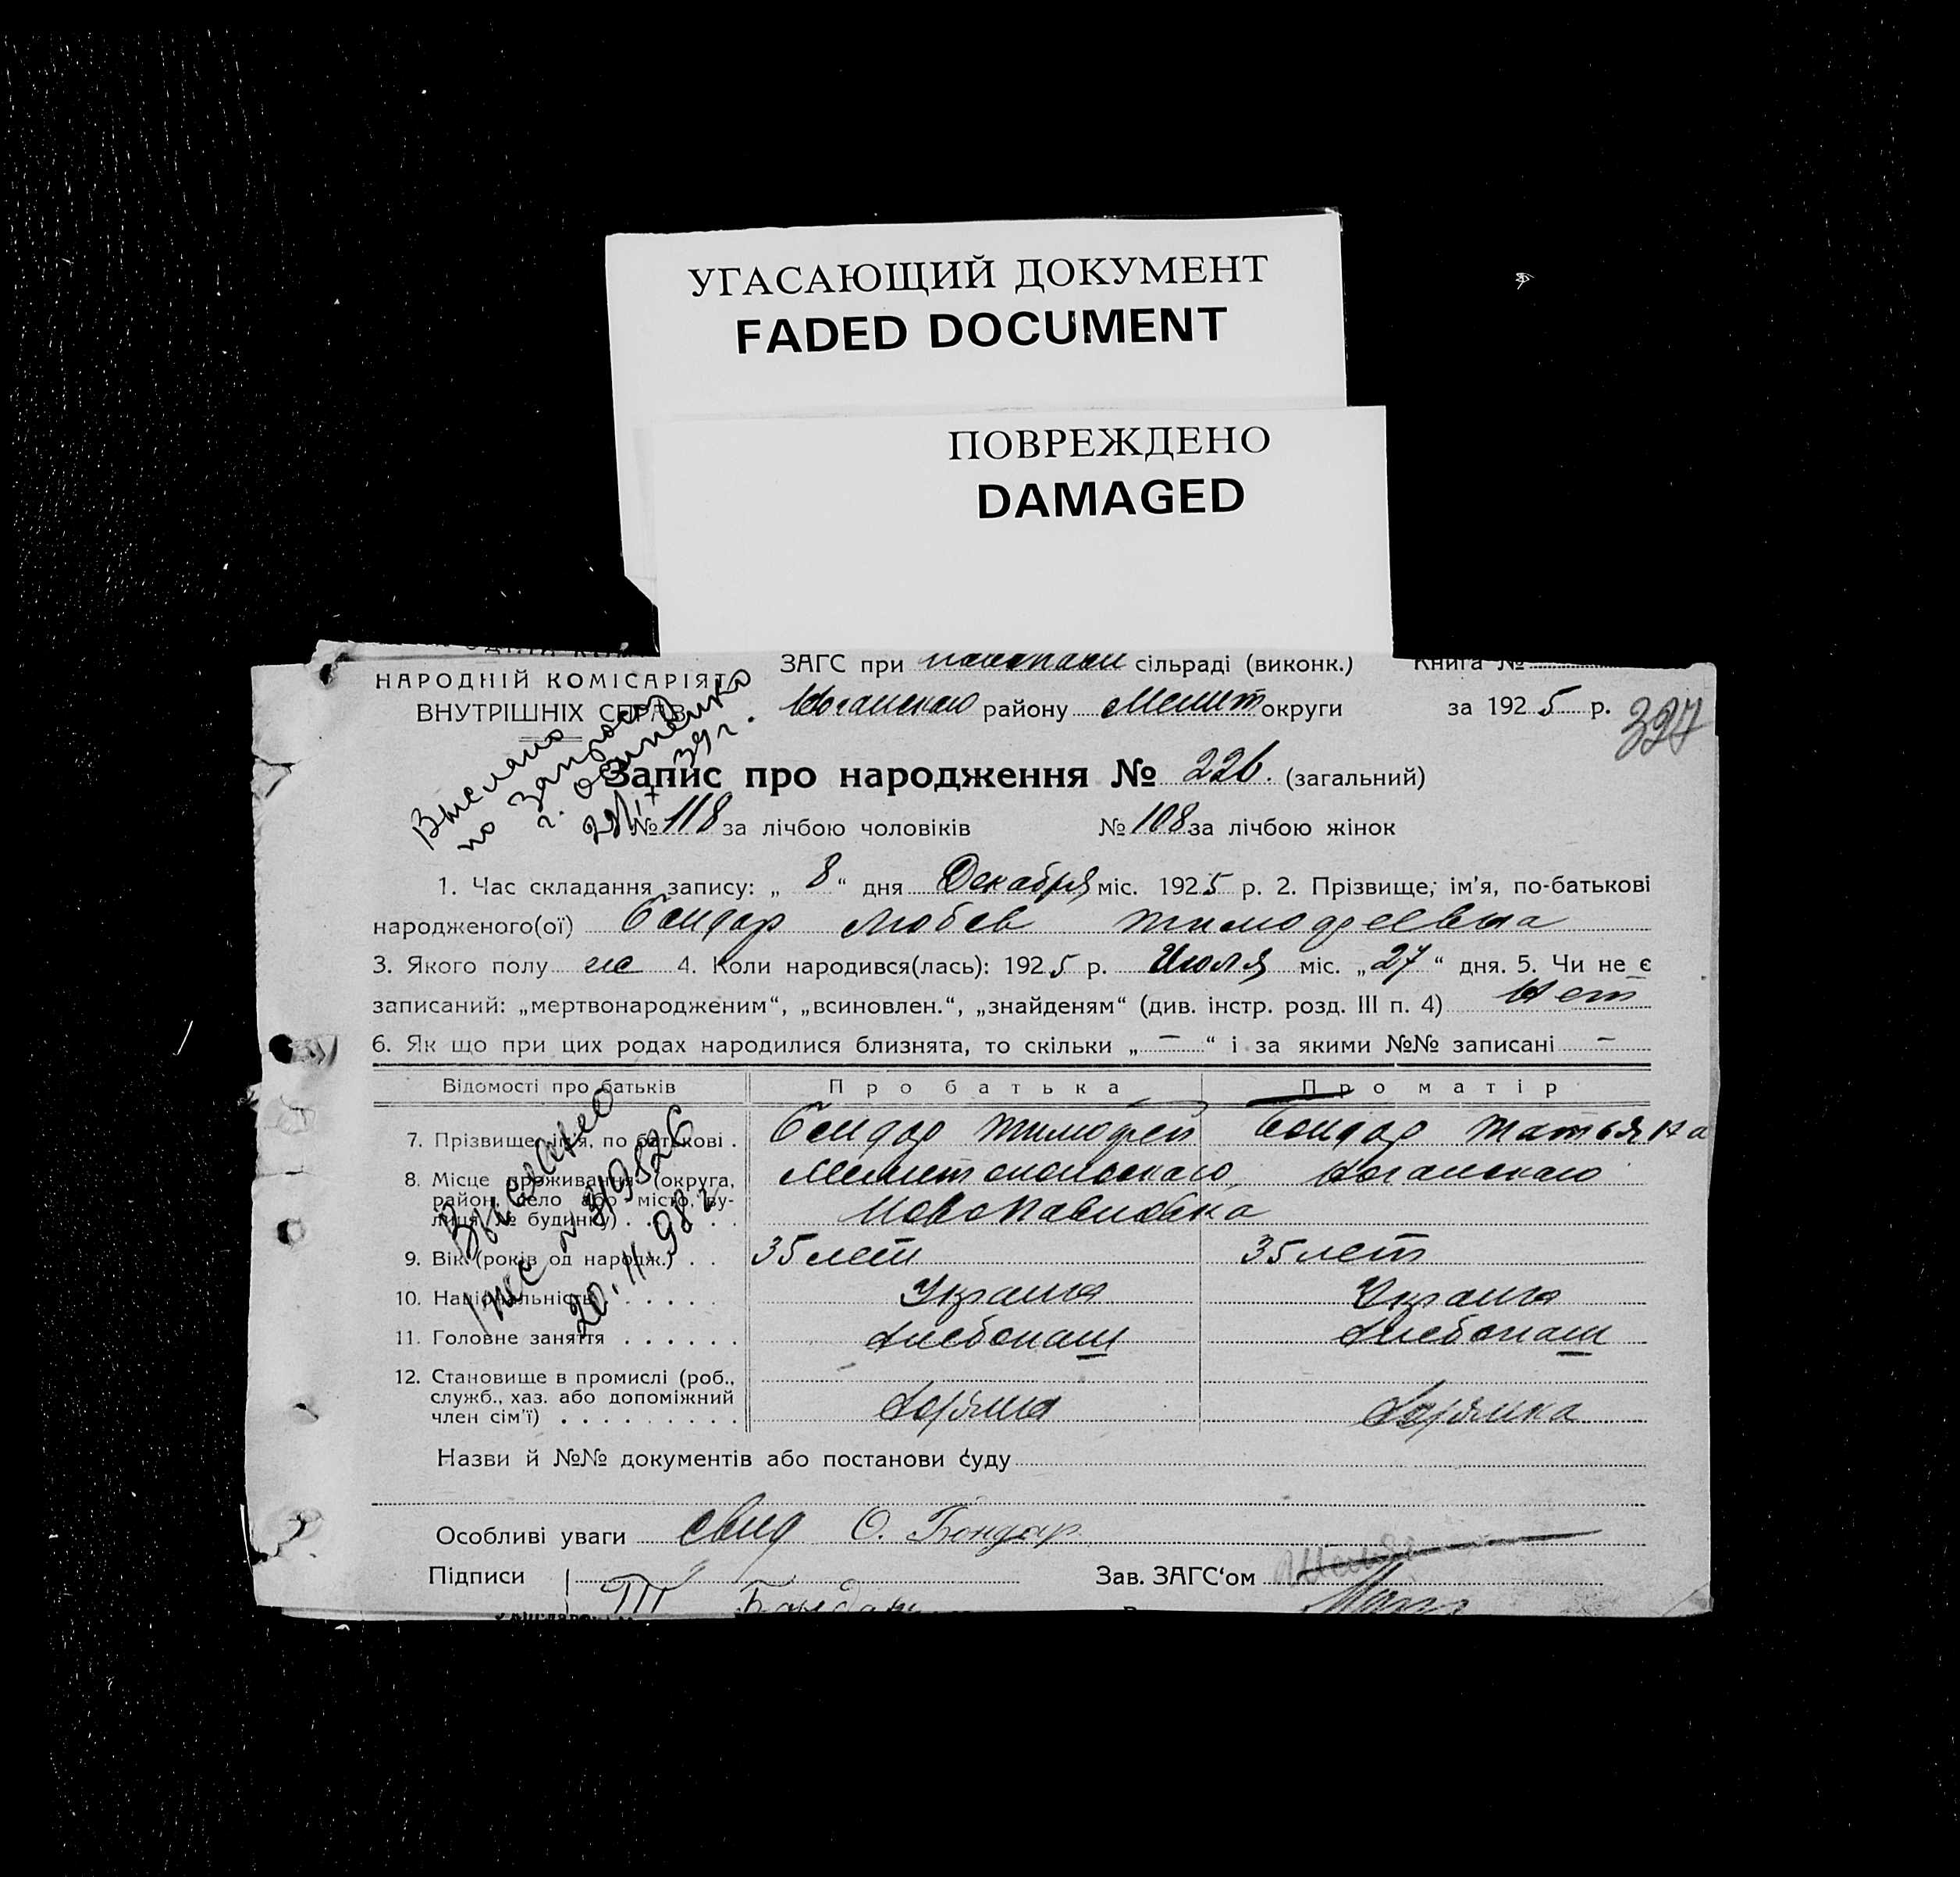 УГАСАЮЩИЙ ДОКУМЕНТ
FADED DOCUMENT
ПОВРЕЖДЕНО
DAMAGED
НАРОДНІЙ КОМІСАРІЯТ
ВНУТРІШНІХ СПРАВ
ЗАГС при сільраді (виконк.)
Книга №
району Мелит округи
за 1925 р.
327
Выслано
по запросу
г. Осипенко
39 г.
Запис про народження № 226. (загальний)
№ 118 за лічбою чоловіків № 108 за лічбою жінок
1. Час складання запису: „ 8 “ дня Декабря міс. 1925 р. 2. Прізвище, ім’я, по-батькові
народженого(ої) Бондар Любов Тимофеевна
3. Якого полу 4. Коли народився(лась): 1925 р. Июля міс. „ 27 “ дня. 5. Чи не є
записаний: „мертвонародженим“, „всиновлен.“, „знайденям“ (див. інстр. розд. III п. 4) Нет
6. Як що при цих родах народилися близнята, то скільки „ – “ і за якими №№ записані –
Відомості про батьків Про батька Про матір
7. Прізвище, ім’я, по батькові . Бондар Тимофей Бондар Татьяна
8. Місце проживання (округа, район, село або місто, вулиця, № будинку) . . . . . Мелитопольскаго,
Новопавловка
9. Вік (років од народж.) . . 35 лет 35 лет
10. Національність . . . . . . Украин Украин
11. Головне заняття . . . . . . Хлебопаш Хлебопаш
12. Становище в промислі (роб., служб., хаз. або допоміжний член сім’ї) . . . . . . . . . Хозяин Хозяйка
Выслано
20.11.98 г
Назви й №№ документів або постанови суду
Особливі уваги свид О. Бондар
Підписи
Зав. ЗАГС‘ом
Т Бондар